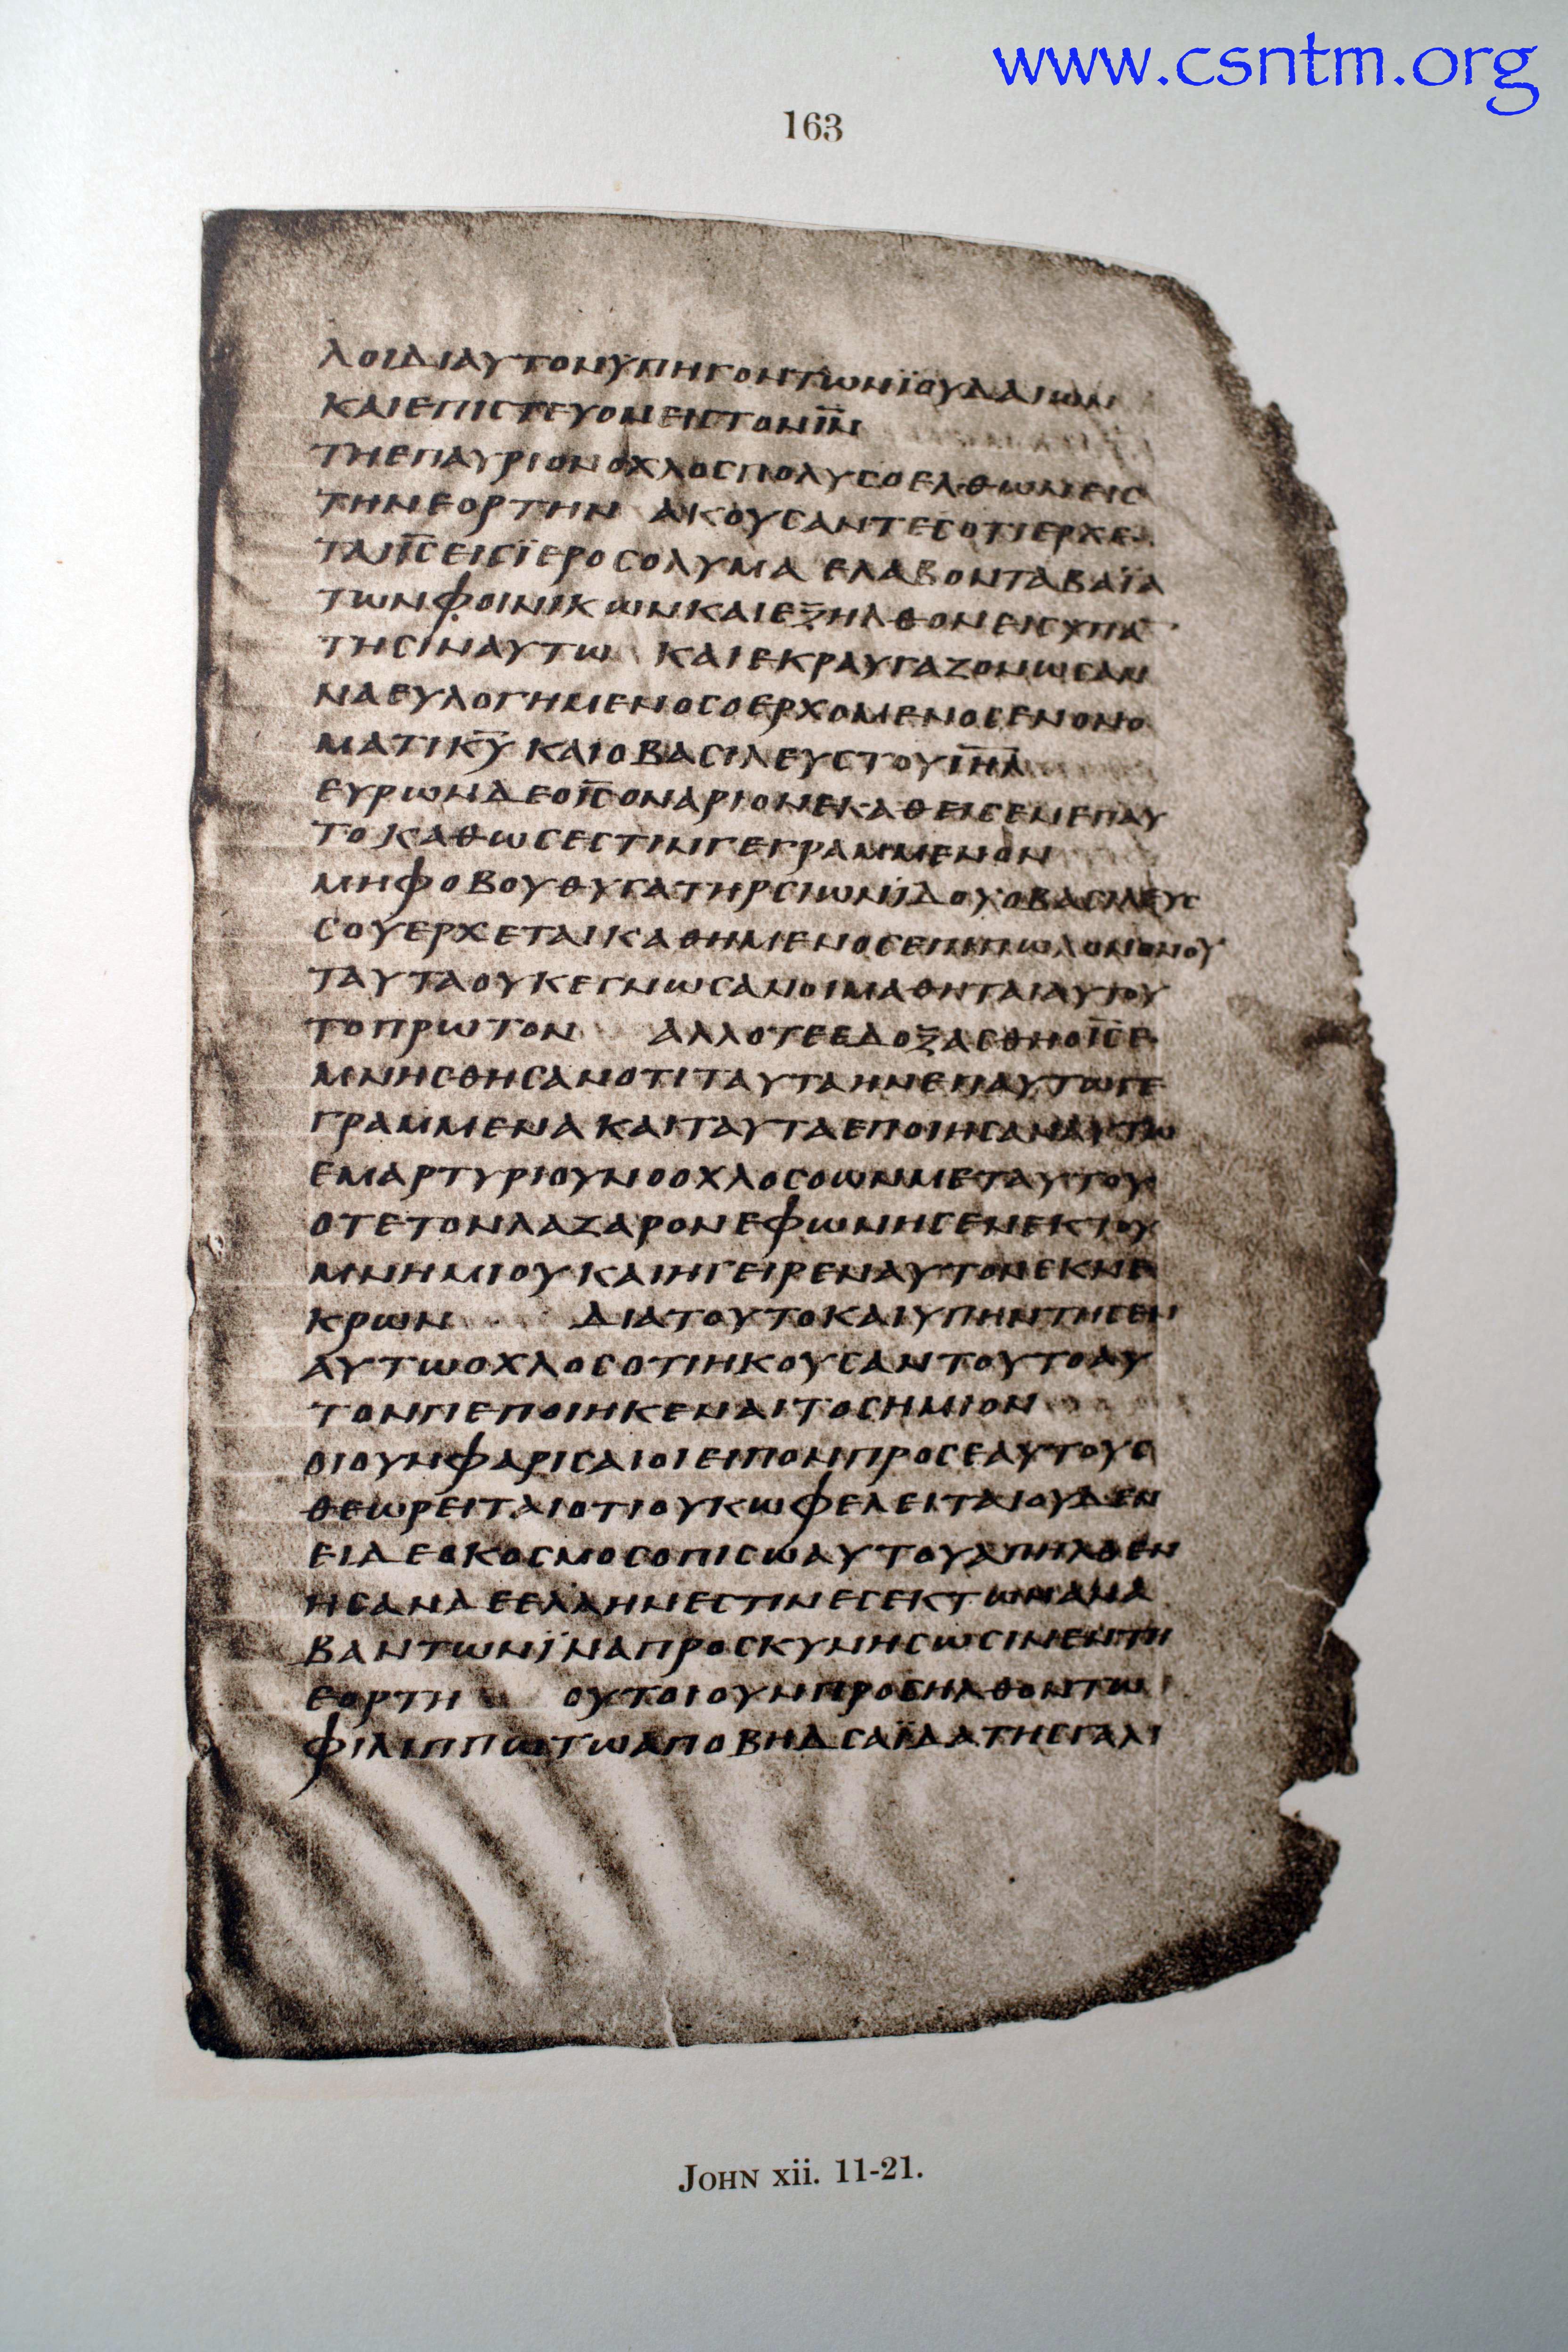 www.csntm.org
163
ΛΟΙΔΙΑΥΤΟΝΫΠΗΓΟΝΤΩΝΪΟΥΔΑΙΩΝ
ΚΑΙΕΠΙCΤΕΥΟΝΕΙCΤΟΝΙ̅Ν̅
ΤΗΕΠΑΥΡΙΟΝΟΧΛΟCΠΟΛΥCΟΕΛΘΩΝΕΙC
ΤΗΝΕΟΡΤΗΝ ΑΚΟΥCΑΝΤΕCΟΤΙΕΡΧΕ
ΤΑΙΙ̅C̅ΕΙCΪΕΡΟCΟΛΥΜΑ ΕΛΑΒΟΝΤΑΒΑΪΑ
ΤΩΝΦΟΙΝΙΚΩΝΚΑΙΕΞΗΛΘΟΝΕΙCΥΠΑ
ΤΗCΙΝΑΥΤΩ ΚΑΙΕΚΡΑΥΓΑΖΟΝΩCΑΝ
ΝΑΕΥΛΟΓΗΜΕΝΟCΟΕΡΧΟΜΕΝΟCΕΝΟΝΟ
ΜΑΤΙΚ̅Υ̅ ΚΑΙΟΒΑCΙΛΕΥCΤΟΥΙ̅Η̅Λ̅
ΕΥΡΩΝΔΕΟΙ̅C̅ΟΝΑΡΙΟΝΕΚΑΘΕΙCΕΝΕΠΑΥ
ΤΟΚΑΘΩCΕCΤΙΝΓΕΓΡΑΜΜΕΝΟΝ
ΜΗΦΟΒΟΥΘΥΓΑΤΗΡCΙΩΝΪΔΟΥΟΒΑCΙΛΕΥC
CΟΥΕΡΧΕΤΑΙΚΑΘΗΜΕΝΟCΕΠΙΠΩΛΟΝΟΝΟΥ
ΤΑΥΤΑΟΥΚΕΓΝΩCΑΝΟΙΜΑΘΗΤΑΙΑΥΤΟΥ
ΤΟΠΡΩΤΟΝ ΑΛΛΟΤΕΕΔΟΞΑCΘΗΟΙ̅C̅Ε
ΜΝΗCΘΗCΑΝΟΤΙΤΑΥΤΑΗΝΕΠΑΥΤΩΓΕ
ΓΡΑΜΜΕΝΑΚΑΙΤΑΥΤΑΕΠΟΙΗCΑΝΑΥΤΩ
ΕΜΑΡΤΥΡΙΟΥΝΟΟΧΛΟCΟΩΝΜΕΤΑΥΤΟΥ
ΟΤΕΤΟΝΛΑΖΑΡΟΝΕΦΩΝΗCΕΝΕΚΤΟΥ
ΜΝΗΜΙΟΥΚΑΙΗΓΕΙΡΕΝΑΥΤΟΝΕΚΝΕ
ΚΡΩΝ ΔΙΑΤΟΥΤΟΚΑΙΥΠΗΝΤΗCΕΝ
ΑΥΤΩΟΧΛΟCΟΤΙΗΚΟΥCΑΝΤΟΥΤΟΑΥ
ΤΟΝΠΕΠΟΙΗΚΕΝΑΙΤΟCΗΜΙΟΝ
ΟΙΟΥΝΦΑΡΙCΑΙΟΙΕΙΠΟΝΠΡΟCΕΑΥΤΟΥC
ΘΕΩΡΕΙΤΑΙΟΤΙΟΥΚΩΦΕΛΕΙΤΑΙΟΥΔΕΝ
ΕΙΔΕΟΚΟCΜΟCΟΠΙCΩΑΥΤΟΥΑΠΗΛΘΕΝ
ΗCΑΝΔΕΕΛΛΗΝΕCΤΙΝΕCΕΚΤΩΝΑΝΑ
ΒΑΝΤΩΝΪΝΑΠΡΟCΚΥΝΗCΩCΙΝΕΝΤΗ
ΕΟΡΤΗ ΟΥΤΟΙΟΥΝΠΡΟCΗΛΘΟΝΤΩ
ΦΙΛΙΠΠΩΤΩΑΠΟΒΗΔCΑΪΔΑΤΗCΓΑΛΙ
JOHN xii. 11-21.